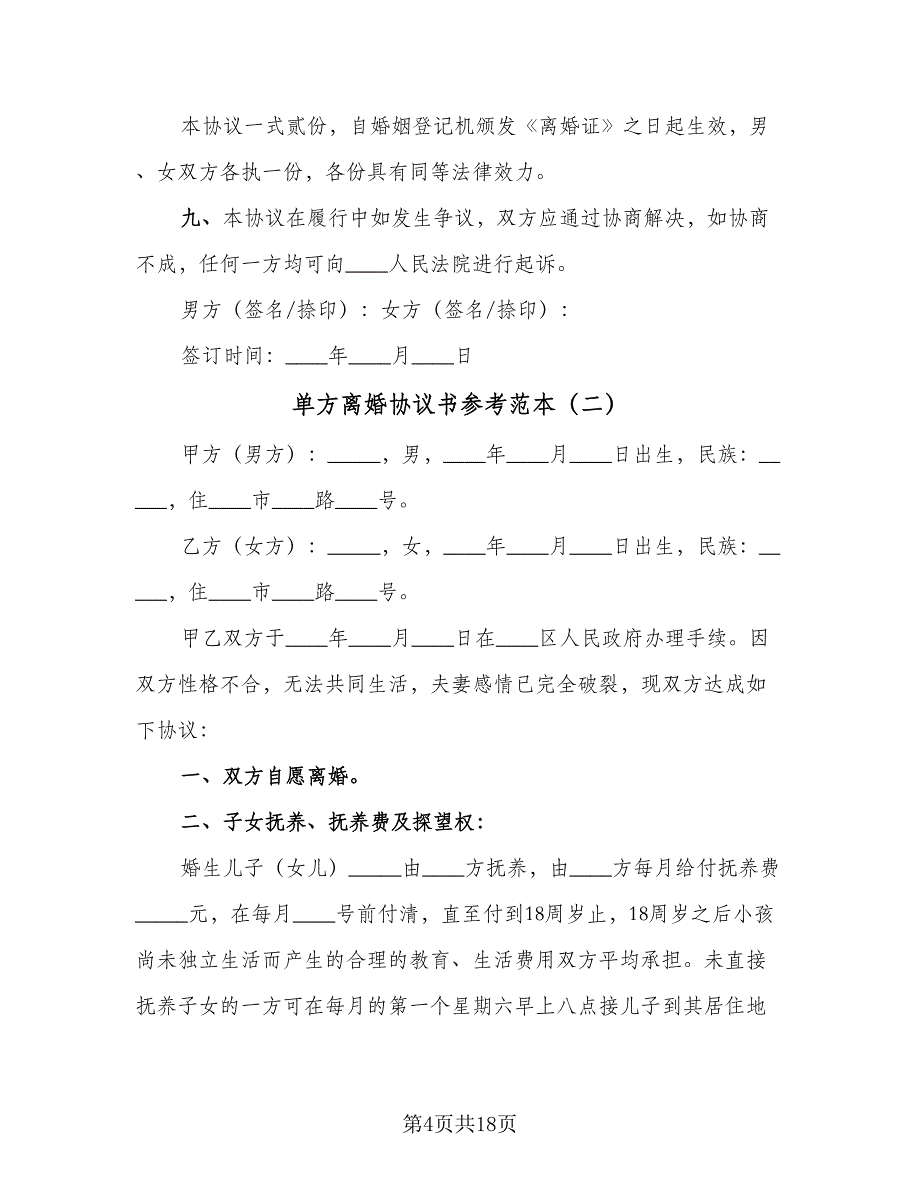 本协议一式贰份，自婚姻登记机颁发《离婚证》之日起生效，男
、女双方各执一份，各份具有同等法律效力。
九、本协议在履行中如发生争议，双方应通过协商解决，如协商
不成，任何一方均可向____人民法院进行起诉。
男方（签名/捺印）：女方（签名/捺印）：
签订时间：____年____月____日
单方离婚协议书参考范本（二）
甲方（男方）：_____，男，____年____月____日出生，民族：__
___，住____市____路____号。
乙方（女方）：_____，女，____年____月____日出生，民族：__
___，住____市____路____号。
甲乙双方于____年____月____日在____区人民政府办理手续。因
双方性格不合，无法共同生活，夫妻感情已完全破裂，现双方达成如
下协议：
一、双方自愿离婚。
二、子女抚养、抚养费及探望权：
婚生儿子（女儿）_____由____方抚养，由____方每月给付抚养费
_____元，在每月____号前付清，直至付到18周岁止，18周岁之后小孩
尚未独立生活而产生的合理的教育、生活费用双方平均承担。未直接
抚养子女的一方可在每月的第一个星期六早上八点接儿子到其居住地
第4页共18页